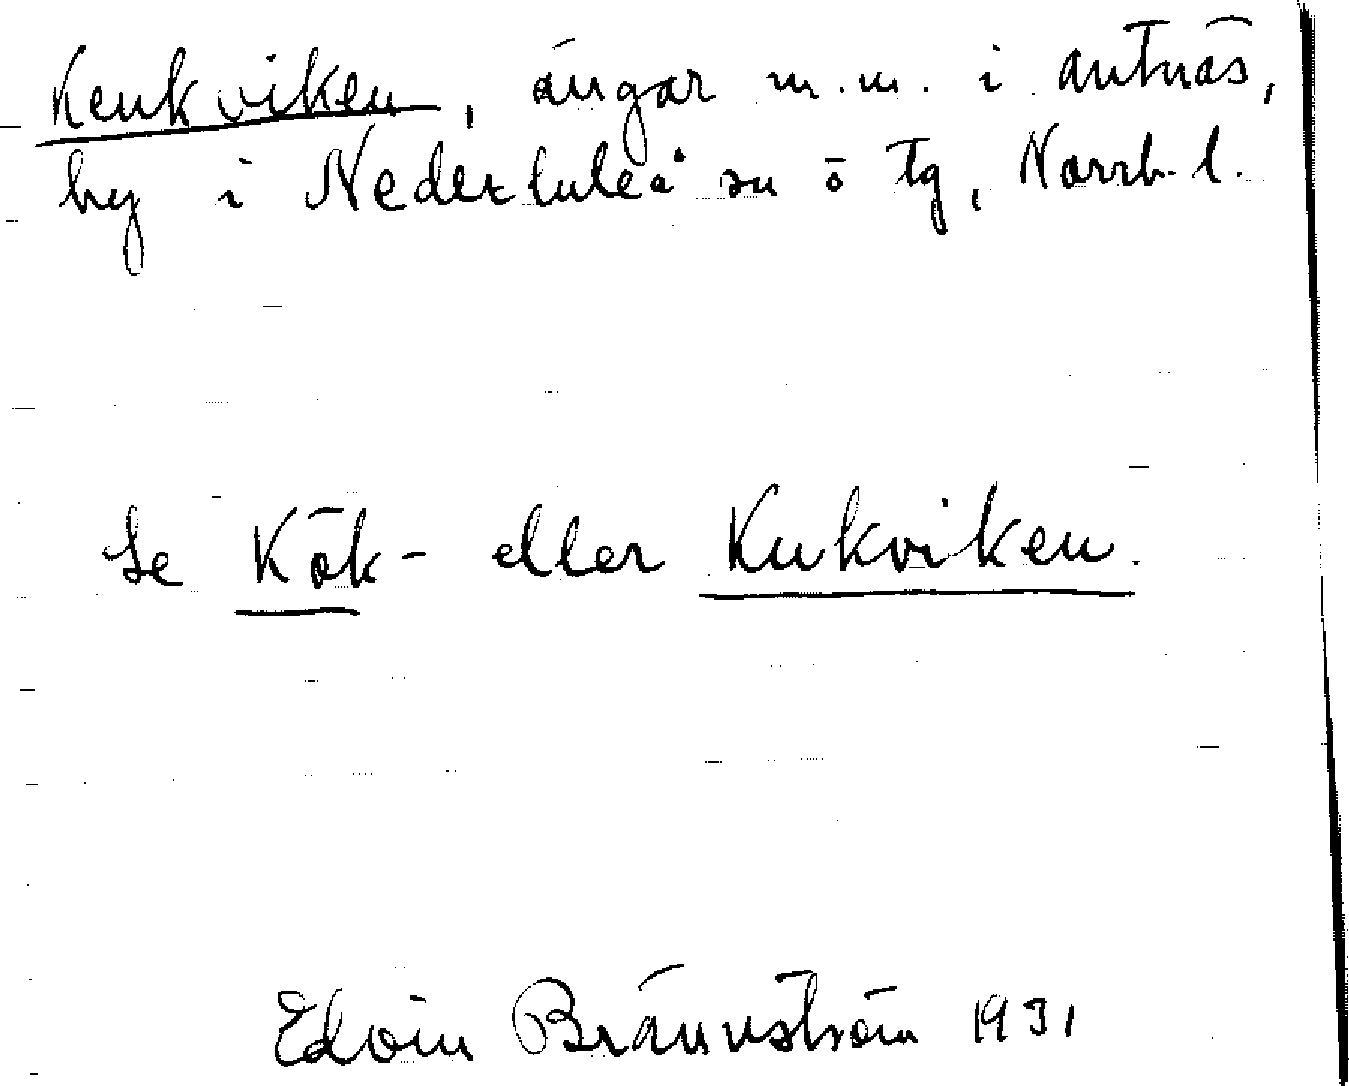 Keukviken, ängar m.m. i Antnäs,
by i Nederluleå sn o tg, Norrb. l.
Se Kök- eller Kukviken.
Edvin Brännström 1931